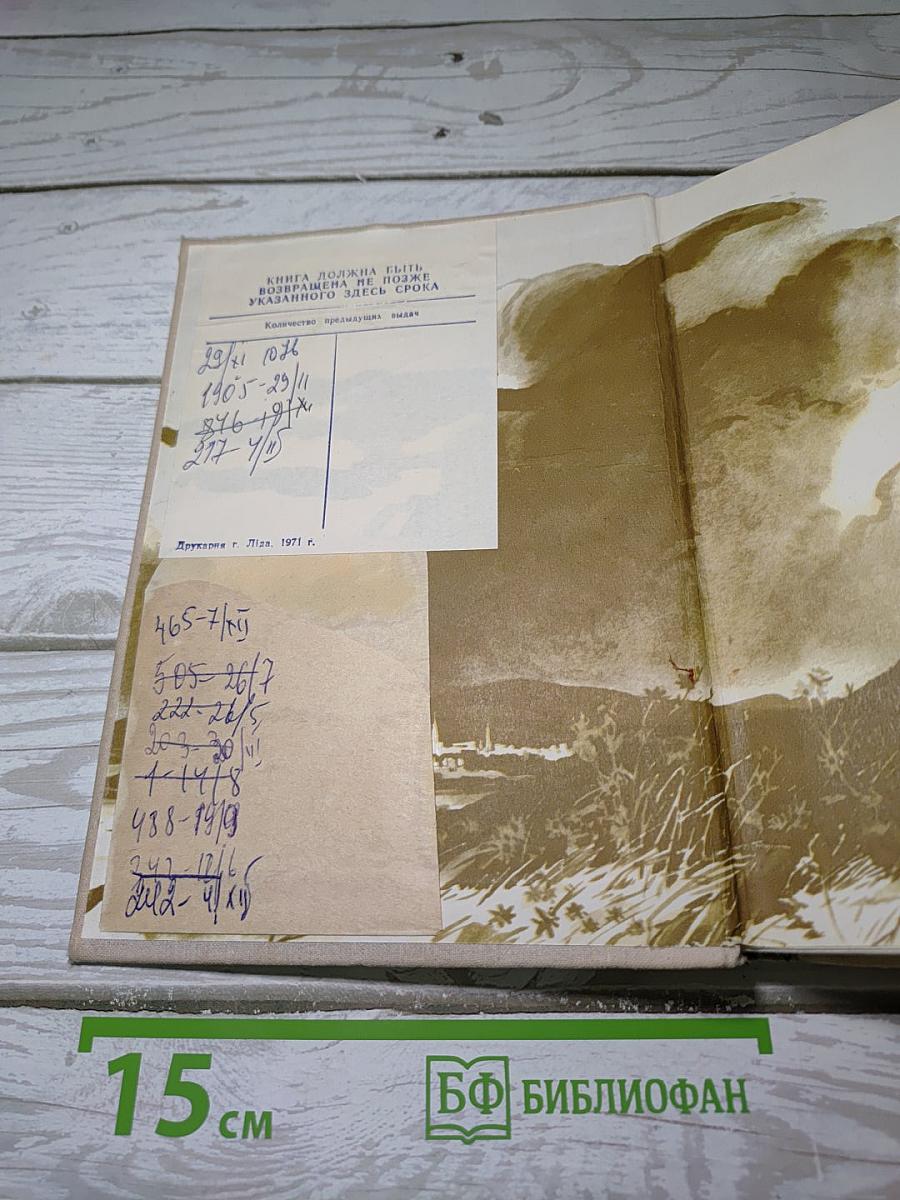 КНИГА ДОЛЖНА БЫТЬ
ВОЗВРАЩЕНА НЕ ПОЗЖЕ
УКАЗАННОГО ЗДЕСЬ СРОКА
Количество предыдущих выдач
29/XI 1076
1905-29/11
876-19/XI
217-4/III
Друкарня г. Ліда, 1971 г.
465-7/XII
505-26/7
222-26/5
203-30/III
1-14/8
488-19/9
242-18/6
202-4/XII
15 см
БФ БИБЛИОФАН